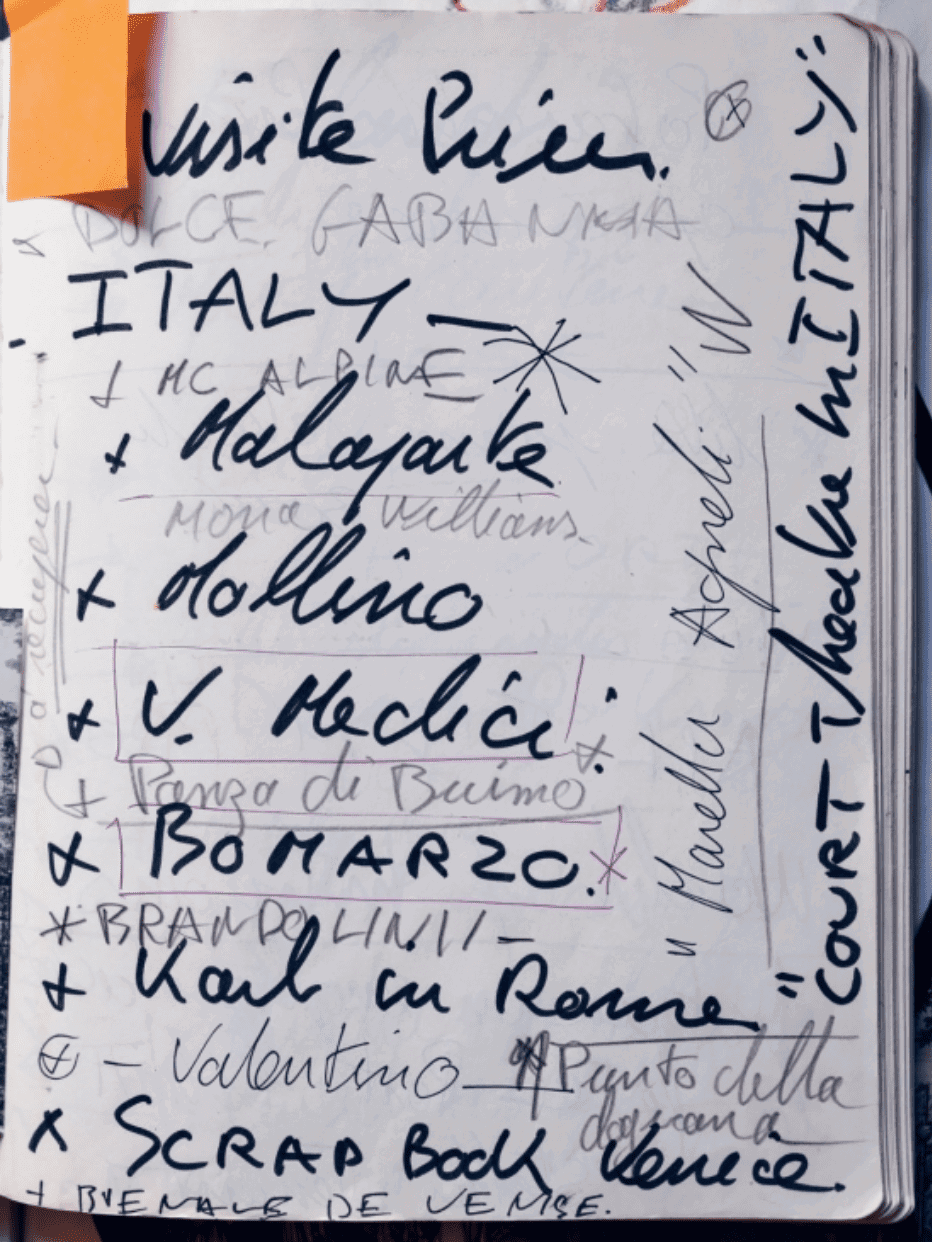 Visite
DOLCE. GABANNA
ITALY —
MC ALPINE
+ Malaparte
Mona Willians.
+ Mollino
+ V. Medici
+ Panza di Buimo
+ BOMARZO.
* BRANDOLINI —
+ Karl in Rome
— Valentino
Punto della
dogana
x SCRAP BOOK Venice.
+ BIENALE DE VENISE.
"Marella Agneli" W
"COURT Theatre in ITALY"